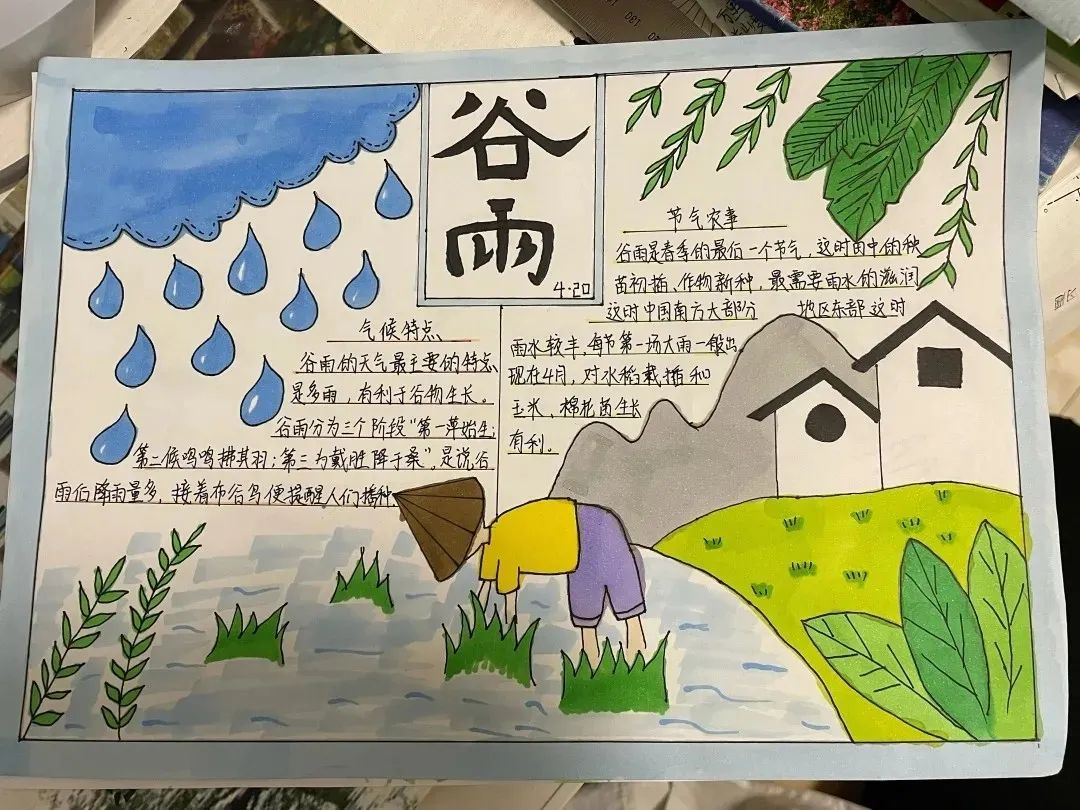 谷雨
4·20
气候特点
谷雨的天气最主要的特点
是多雨，有利于谷物生长。
谷雨分为三个阶段“第一萍始生；
第二候鸣鸠拂其羽；第三为戴胜降于桑”，是说谷
雨后降雨量多，接着布谷鸟便提醒人们播种
节气农事
谷雨是春季的最后一个节气，这时田中的秧
苗初插、作物新种，最需要雨水的滋润
这时中国南方大部分 地区东部这时
雨水较丰，每节第一场大雨一般出
现在4月，对水稻栽插和
玉米、棉花苗生长
有利。